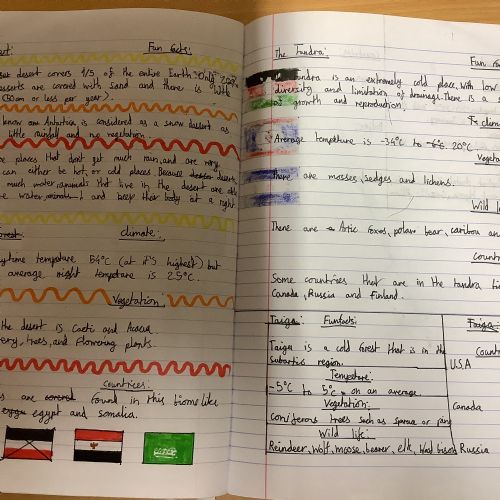 Fun facts:
desert covers 1/5 of the entire Earth "Only" 20%
deserts are covered with sand and there is little
(50cm or less per year).
know one Antartica is considered as a snow desert as
little rainfall and no vegetation.
places that don't get much rain, and are very
can either be hot, or cold places. Because deserts
much water, animals that live in the desert are able
water and keep their body at a right
climate:
daytime tempature 54°C (at it's highest) but
average night tempature is 25°C.
Vegetation
the desert is Cacti and Acacia
trees, and flowering plants.
Countrices:
are covered found in this biome like
egypt and somalia.
The Tundra:
Fun
Tundra is an extremely cold place, with low
diversity and limitation of drainage. There is a
of growth and reproduction.
It's clim
Average tempeture is -34°C to -6°C 20°C
Vegeta
There are mosses, sedges and lichens.
Wild l
There are Artic foxes, polar bear, caribou an
Countri
Some countries that are in the tundra
Canada, Russia and Finland.
Taiga: Funfacts:
Taiga is a cold forest that is in the
Subartic region.
Tempeture:
-5°C to 5°C on an average.
Vegetation:
Coniferous trees such as spruce or
Wild life:
Reindeer, Wolf, moose, bearer, elk, bison
Taiga:
Count
U.S.A
Canada
Russia